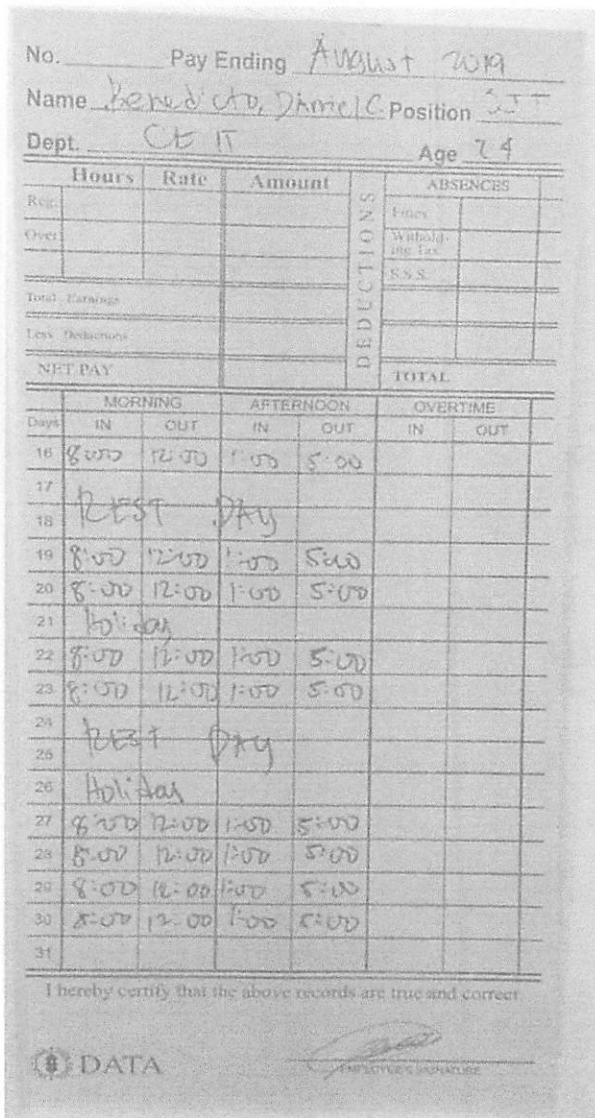 No. Pay Ending August 2019
Name Benedicto, Daniel C. Position
Dept. Age 24
Hours Rate Amount DEDUCTIONS ABSENCES
Reg. Fines
Over Withold-
ing Tax
S.S.S.
Total Earnings
Less Deductions
NET PAY TOTAL
MORNING AFTERNOON OVERTIME
Days IN OUT IN OUT IN OUT
16 8:00 12:00 1:00 5:00
17
REST DAY
18
19 8:00 12:00 1:00 5:00
20 8:00 12:00 1:00 5:00
21 Holiday
22 8:00 12:00 1:00 5:00
23 8:00 12:00 1:00 5:00
24
REST DAY
25
26 Holiday
27 8:00 12:00 1:00 5:00
28 8:00 12:00 1:00 5:00
29 8:00 12:00 1:00 5:00
30 8:00 12:00 1:00 5:00
31
I hereby certify that the above records are true and correct
DATA
EMPLOYEE'S SIGNATURE